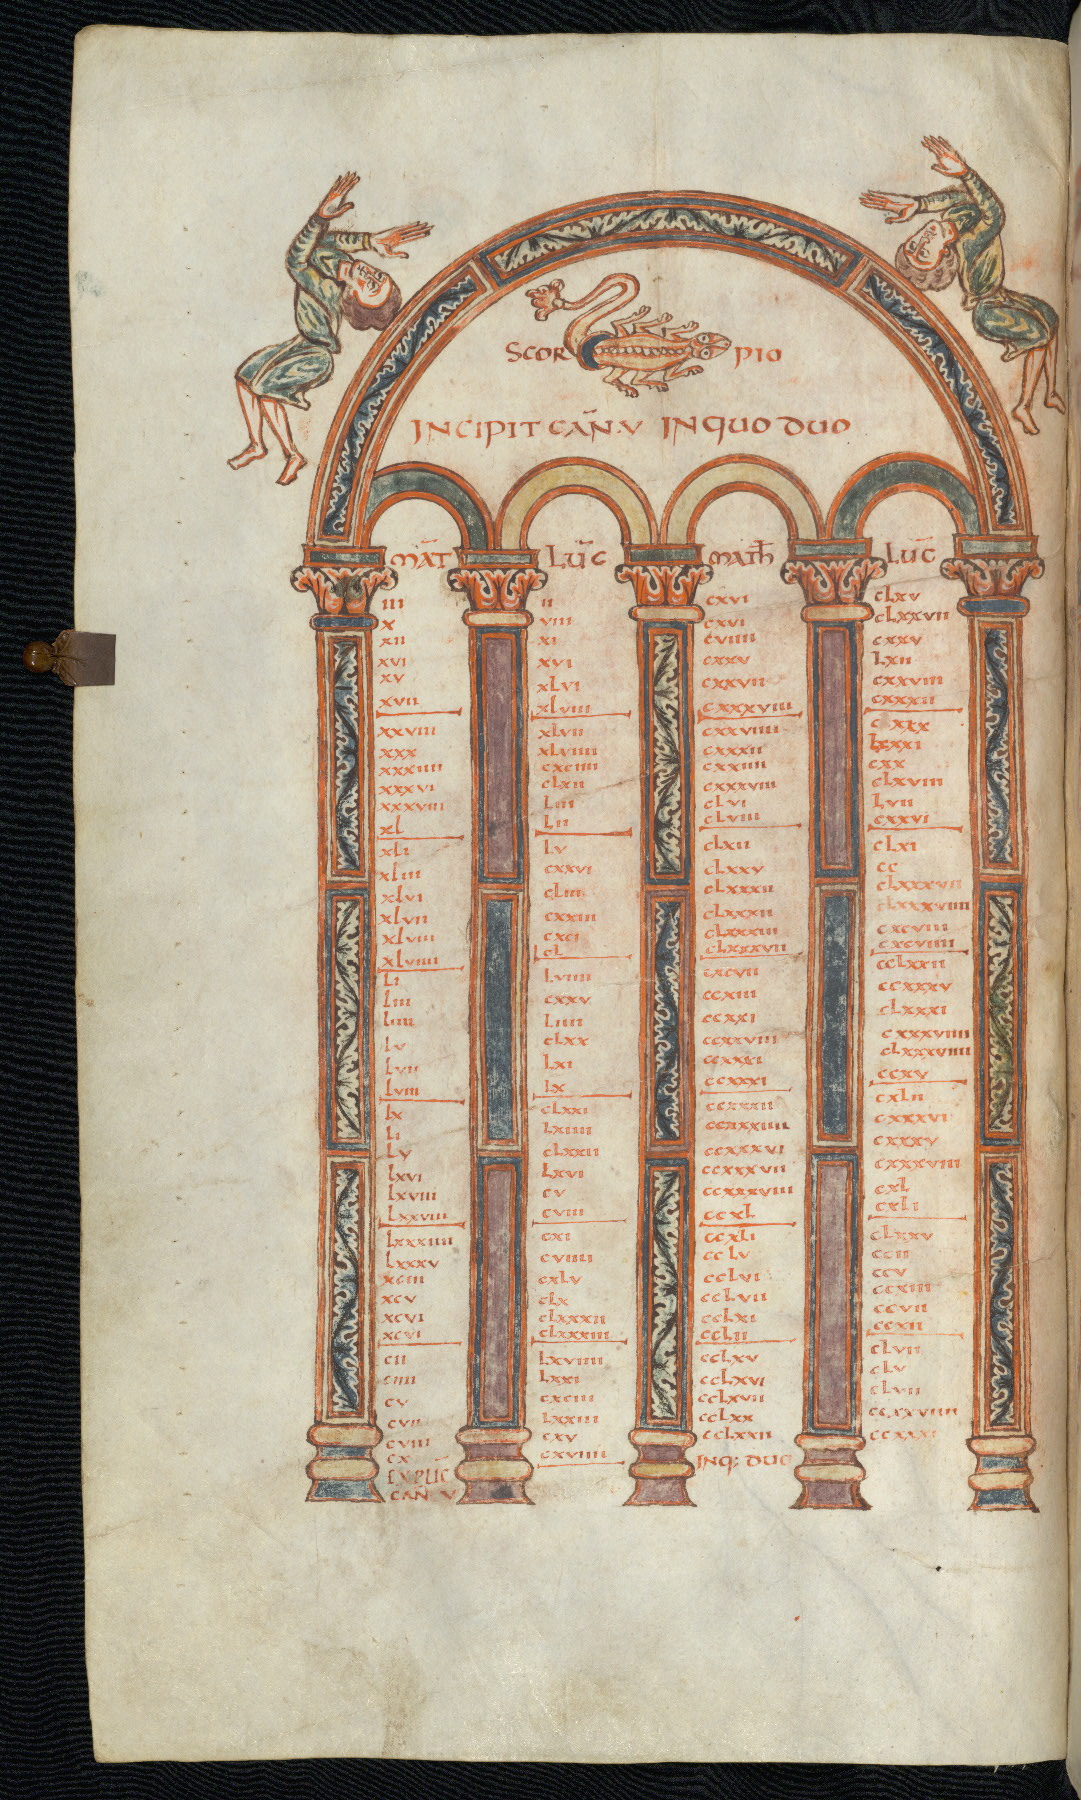 SCORPIO
INCIPIT CAN̄·V IN QUO DUO
MAT̄
III
X
XII
XVI
XV
XVII
XXVIII
XXX
XXXIIII
XXXVI
XXXVIII
XL
XLI
XLIII
XLVI
XLVII
XLVIII
XLVIIII
LI
LIII
LIIII
LV
LVII
LVIII
LX
LI
LV
LXVI
LXVIII
LXXVIII
LXXXIIII
LXXXV
XCIII
XCV
XCVI
XCVI
CII
CIIII
CV
CVII
CVIII
CX
EXPLIC̄
CAN̄ V
LUC̄
II
VIII
XI
XVI
XLVI
XLVIII
XLVII
XLVIIII
CXCIIII
CLXII
LIII
LII
LV
CXXVI
CLIII
CXXIII
CXCI
CL
LVIIII
CXXV
LIIII
CLXX
LXI
LX
CLXXI
LXIIII
CLXXII
LXVI
CV
CVIII
CXI
CVIIII
CXLV
CLX
CLXXXII
CLXXXIII
LXVIIII
LXXI
CXCIII
LXXIII
CXV
CXVIIII
MATH̄
CXVI
CXVI
CVIIII
CXXV
CXXVII
CXXXVIIII
CXXVIIII
CXXXII
CXXIIII
CXXXVIII
CLVI
CLVIII
CLXII
CLXXV
CLXXXII
CLXXXII
CLXXXIII
CLXXXVII
CXCVII
CCXIII
CCXXI
CCXXVIII
CCXXXI
CCXXXI
CCXXXII
CCXXXIIII
CCXXXVI
CCXXXVII
CCXXXVIII
CCXL
CCXLI
CCLV
CCLVI
CCLVII
CCLXI
CCLII
CCLXV
CCLXVI
CCLXVII
CCLXX
CCLXXII
INQ: DUO
LUC̄
CLXV
CLXXVII
CXXV
LXII
CXXVIII
CXXXII
LXXXI
CXX
CLXVIII
LVII
CXXVI
CLXI
CC
CLXXXVII
CLXXXVIIII
CXCVIII
CXCVIIII
CCLXXII
CCXXXV
CLXXXI
CXXXVIIII
CLXXXVIIII
CCXV
CXLII
CXXXVI
CXXXV
CXXXVIII
CXL
CXLI
CLXXV
CCII
CCV
CCXIII
CCVII
CCXII
CLVII
CLV
CLVII
CCXXVIIII
CCXXXI